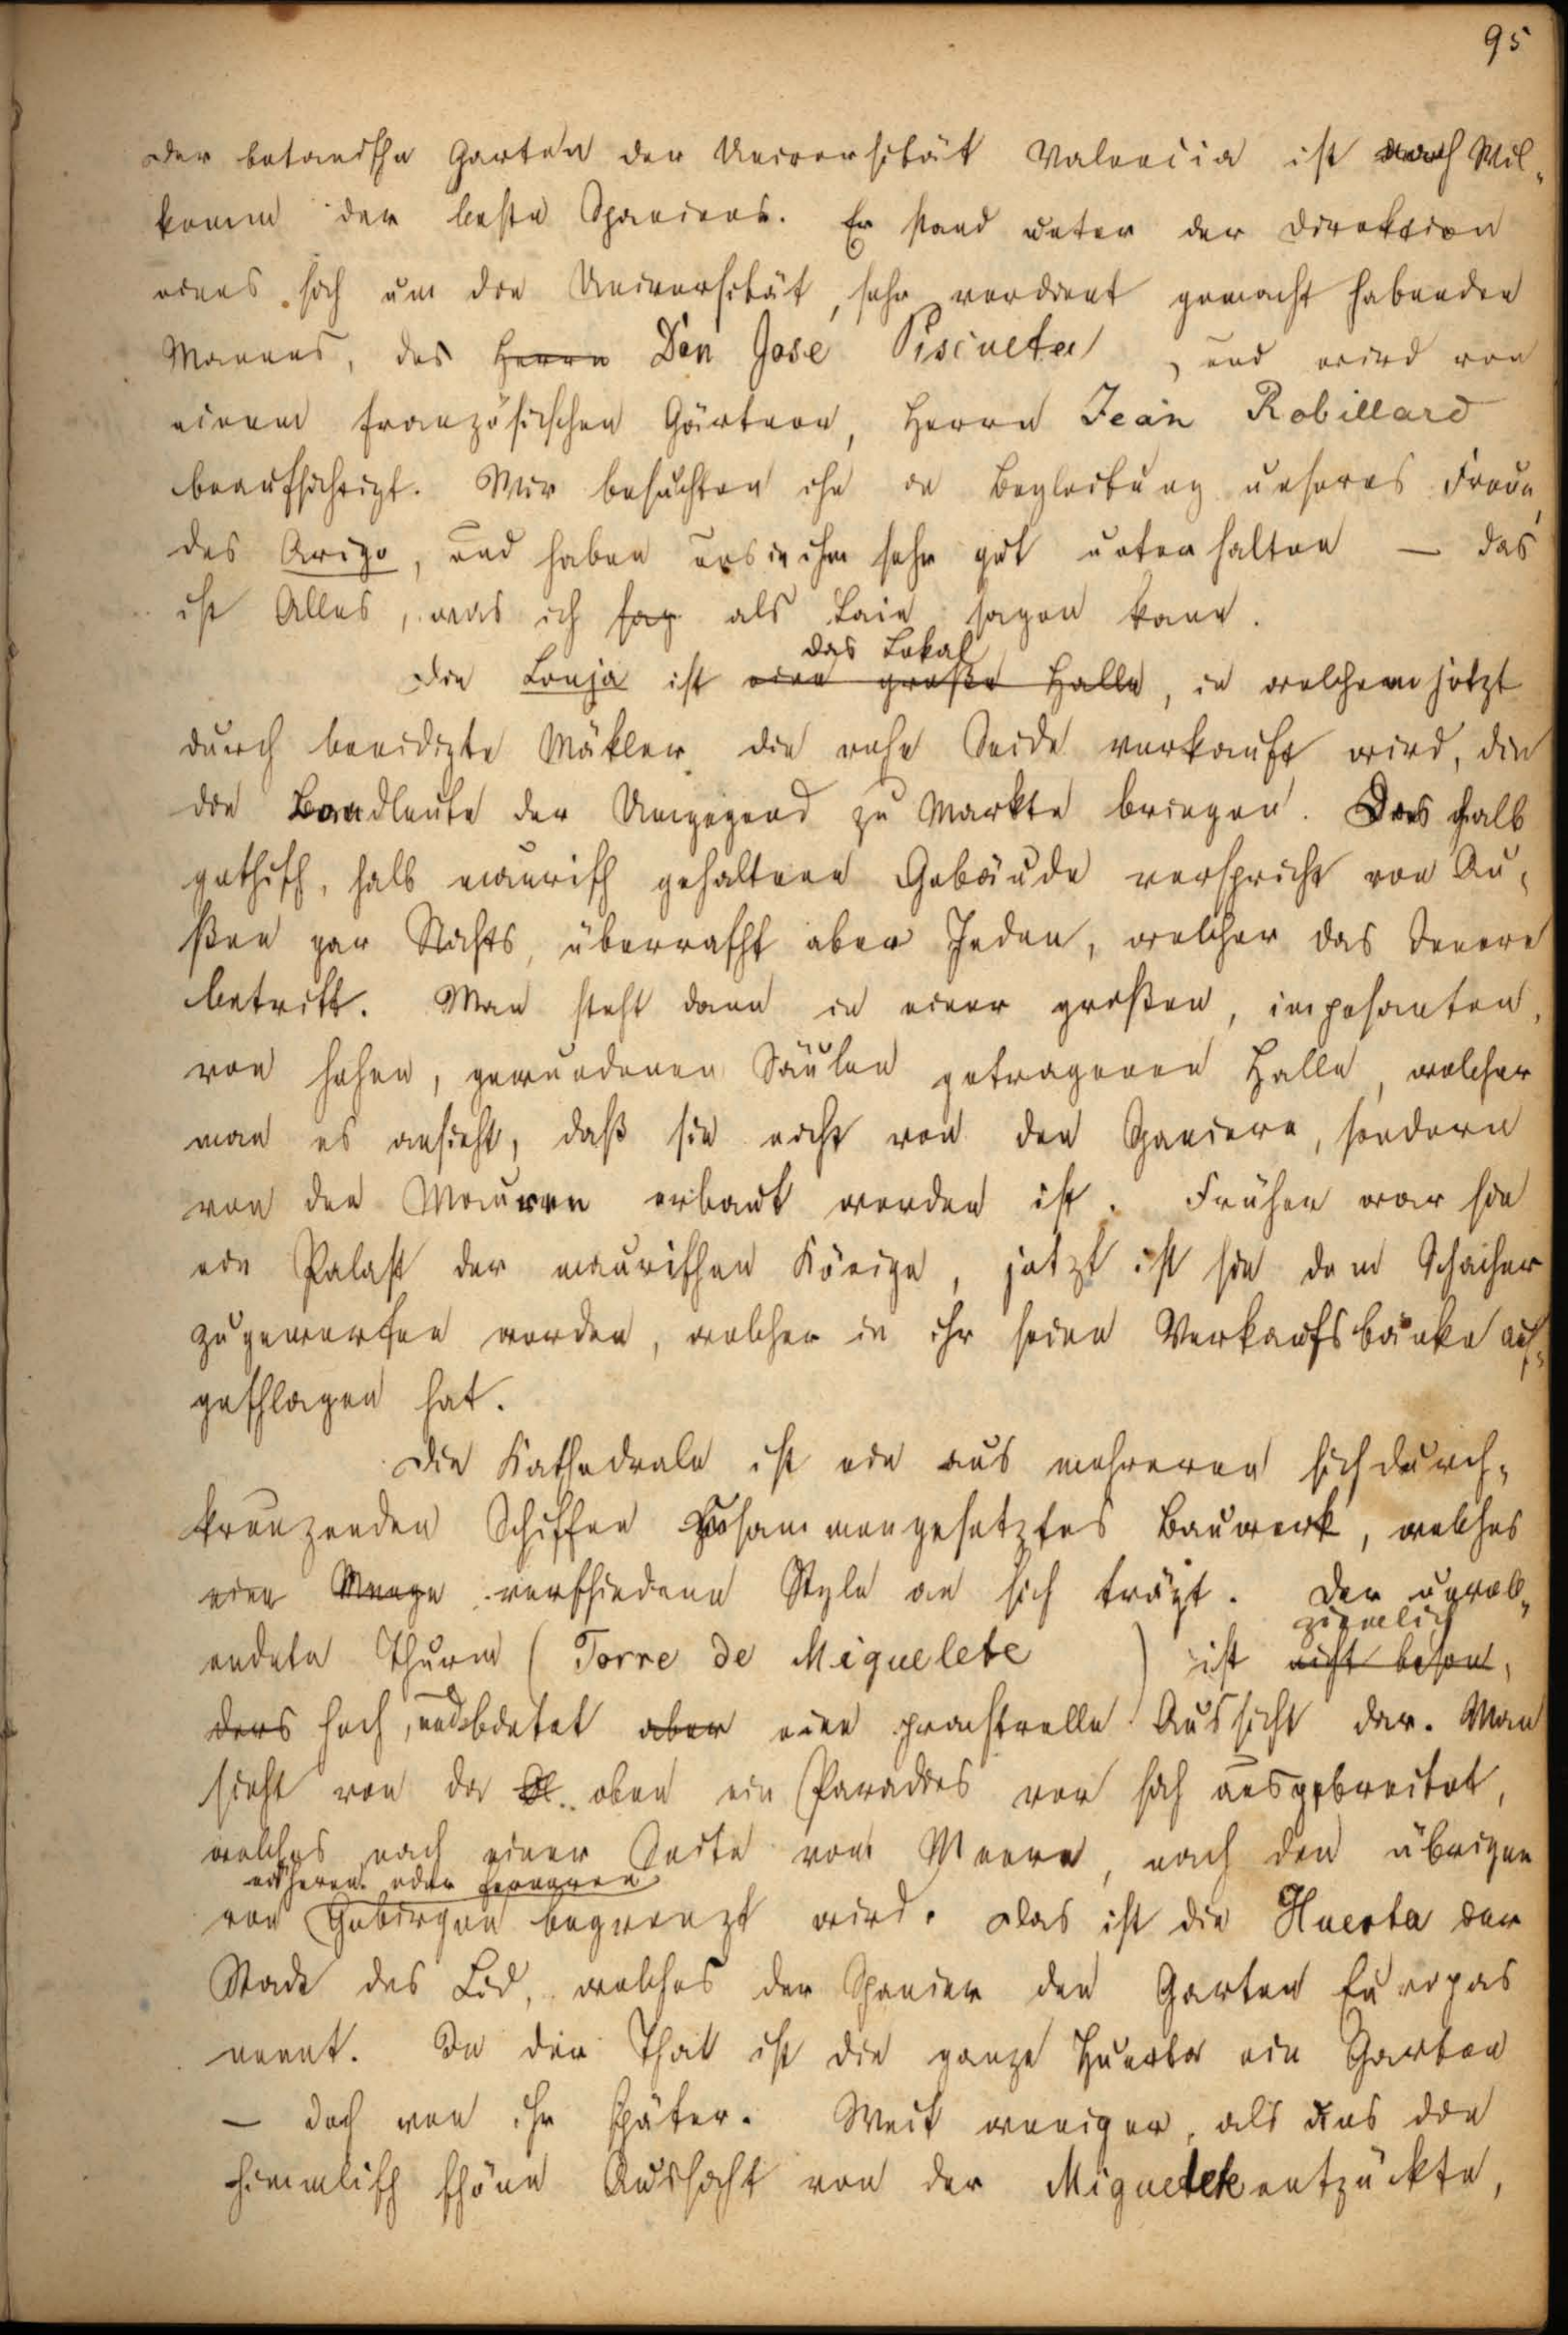 95
Der botanische Garten der Universität Valencia ist nach Wil-
komm der beste Spaniens. Er stand unter der Direktion
eines sich um die Universität, sehr verdient gemacht habenden
Mannes, des Herrn Don José Piscueta, und wird von
einem französischen Gärtner, Herrn Jean Robillard
beaufsichtigt. Wir besuchten ihn in Begleitung unseres Freun-
des Arigo, und haben uns in ihm sehr gut unterhalten — das
ist Alles, was ich sag als Laie sagen kann.
das Lokal
Die Lonja ist eine große Halle, in welchem jetzt
durch beeidigte Mäkler die rohe Seide verkauft wird, die
die Landleute der Umgegend zu Markte bringen. Das halb
gothisch, halb maurisch gehaltene Gebäude verspricht von Au-
ßen gar Nichts, überrascht aber Jeden, welcher das Innere
betritt. Man steht dann in einer großen, imposanten,
von hohen, gewundenen Säulen getragenen Halle, welcher
man es ansieht, daß sie nicht von den Spaniern, sondern
von den Mauren erbaut worden ist. Früher war sie
ein Palast der maurischen Könige, jetzt ist sie dem Schacher
zugeworfen worden, welcher in ihr seine Verkaufsbänke auf-
geschlagen hat.
Die Kathedrale ist ein aus mehreren sich durch-
kreuzenden Schiffen zusammengesetztes Bauwerk, welches
eine Menge verschiedene Style an sich trägt. Der unvoll-
ziemlich
endete Thurm (Torre de Miquelete) ist nicht beson-
ders hoch, und bietet aber eine prachtvolle Aussicht dar. Man
sieht von da oben ein Paradies vor sich ausgebreitet,
welches nach einer Seite vom Meere, nach den übrigen
näheren oder ferneren
von Gebirgen begrenzt wird. Das ist die Huerta der
Stadt des Cid, welches der Spanier den Garten Europas
nennt. In der That ist die ganze Huerta ein Garten
— doch von ihr später. Weit weniger, als uns die
himmlisch schöne Aussicht von der Miguelete entzückte,